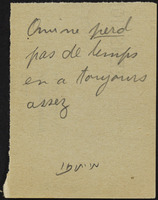 Qui ne perd
pas de temps
en a toujours
assez